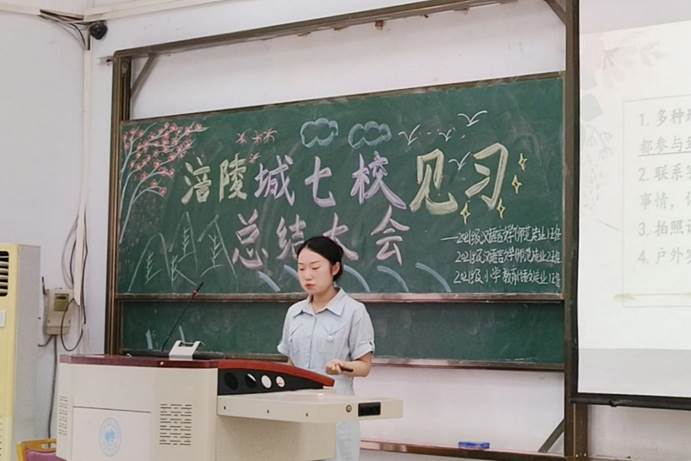 涪陵城七校见习
总结大会
——2021级汉语言文学(师范)专业1、2班
2021级汉语言文学(师范)专业
2021级小学教育
1. 多种
都参与
2. 联系
事情,
3. 拍照
4. 户外